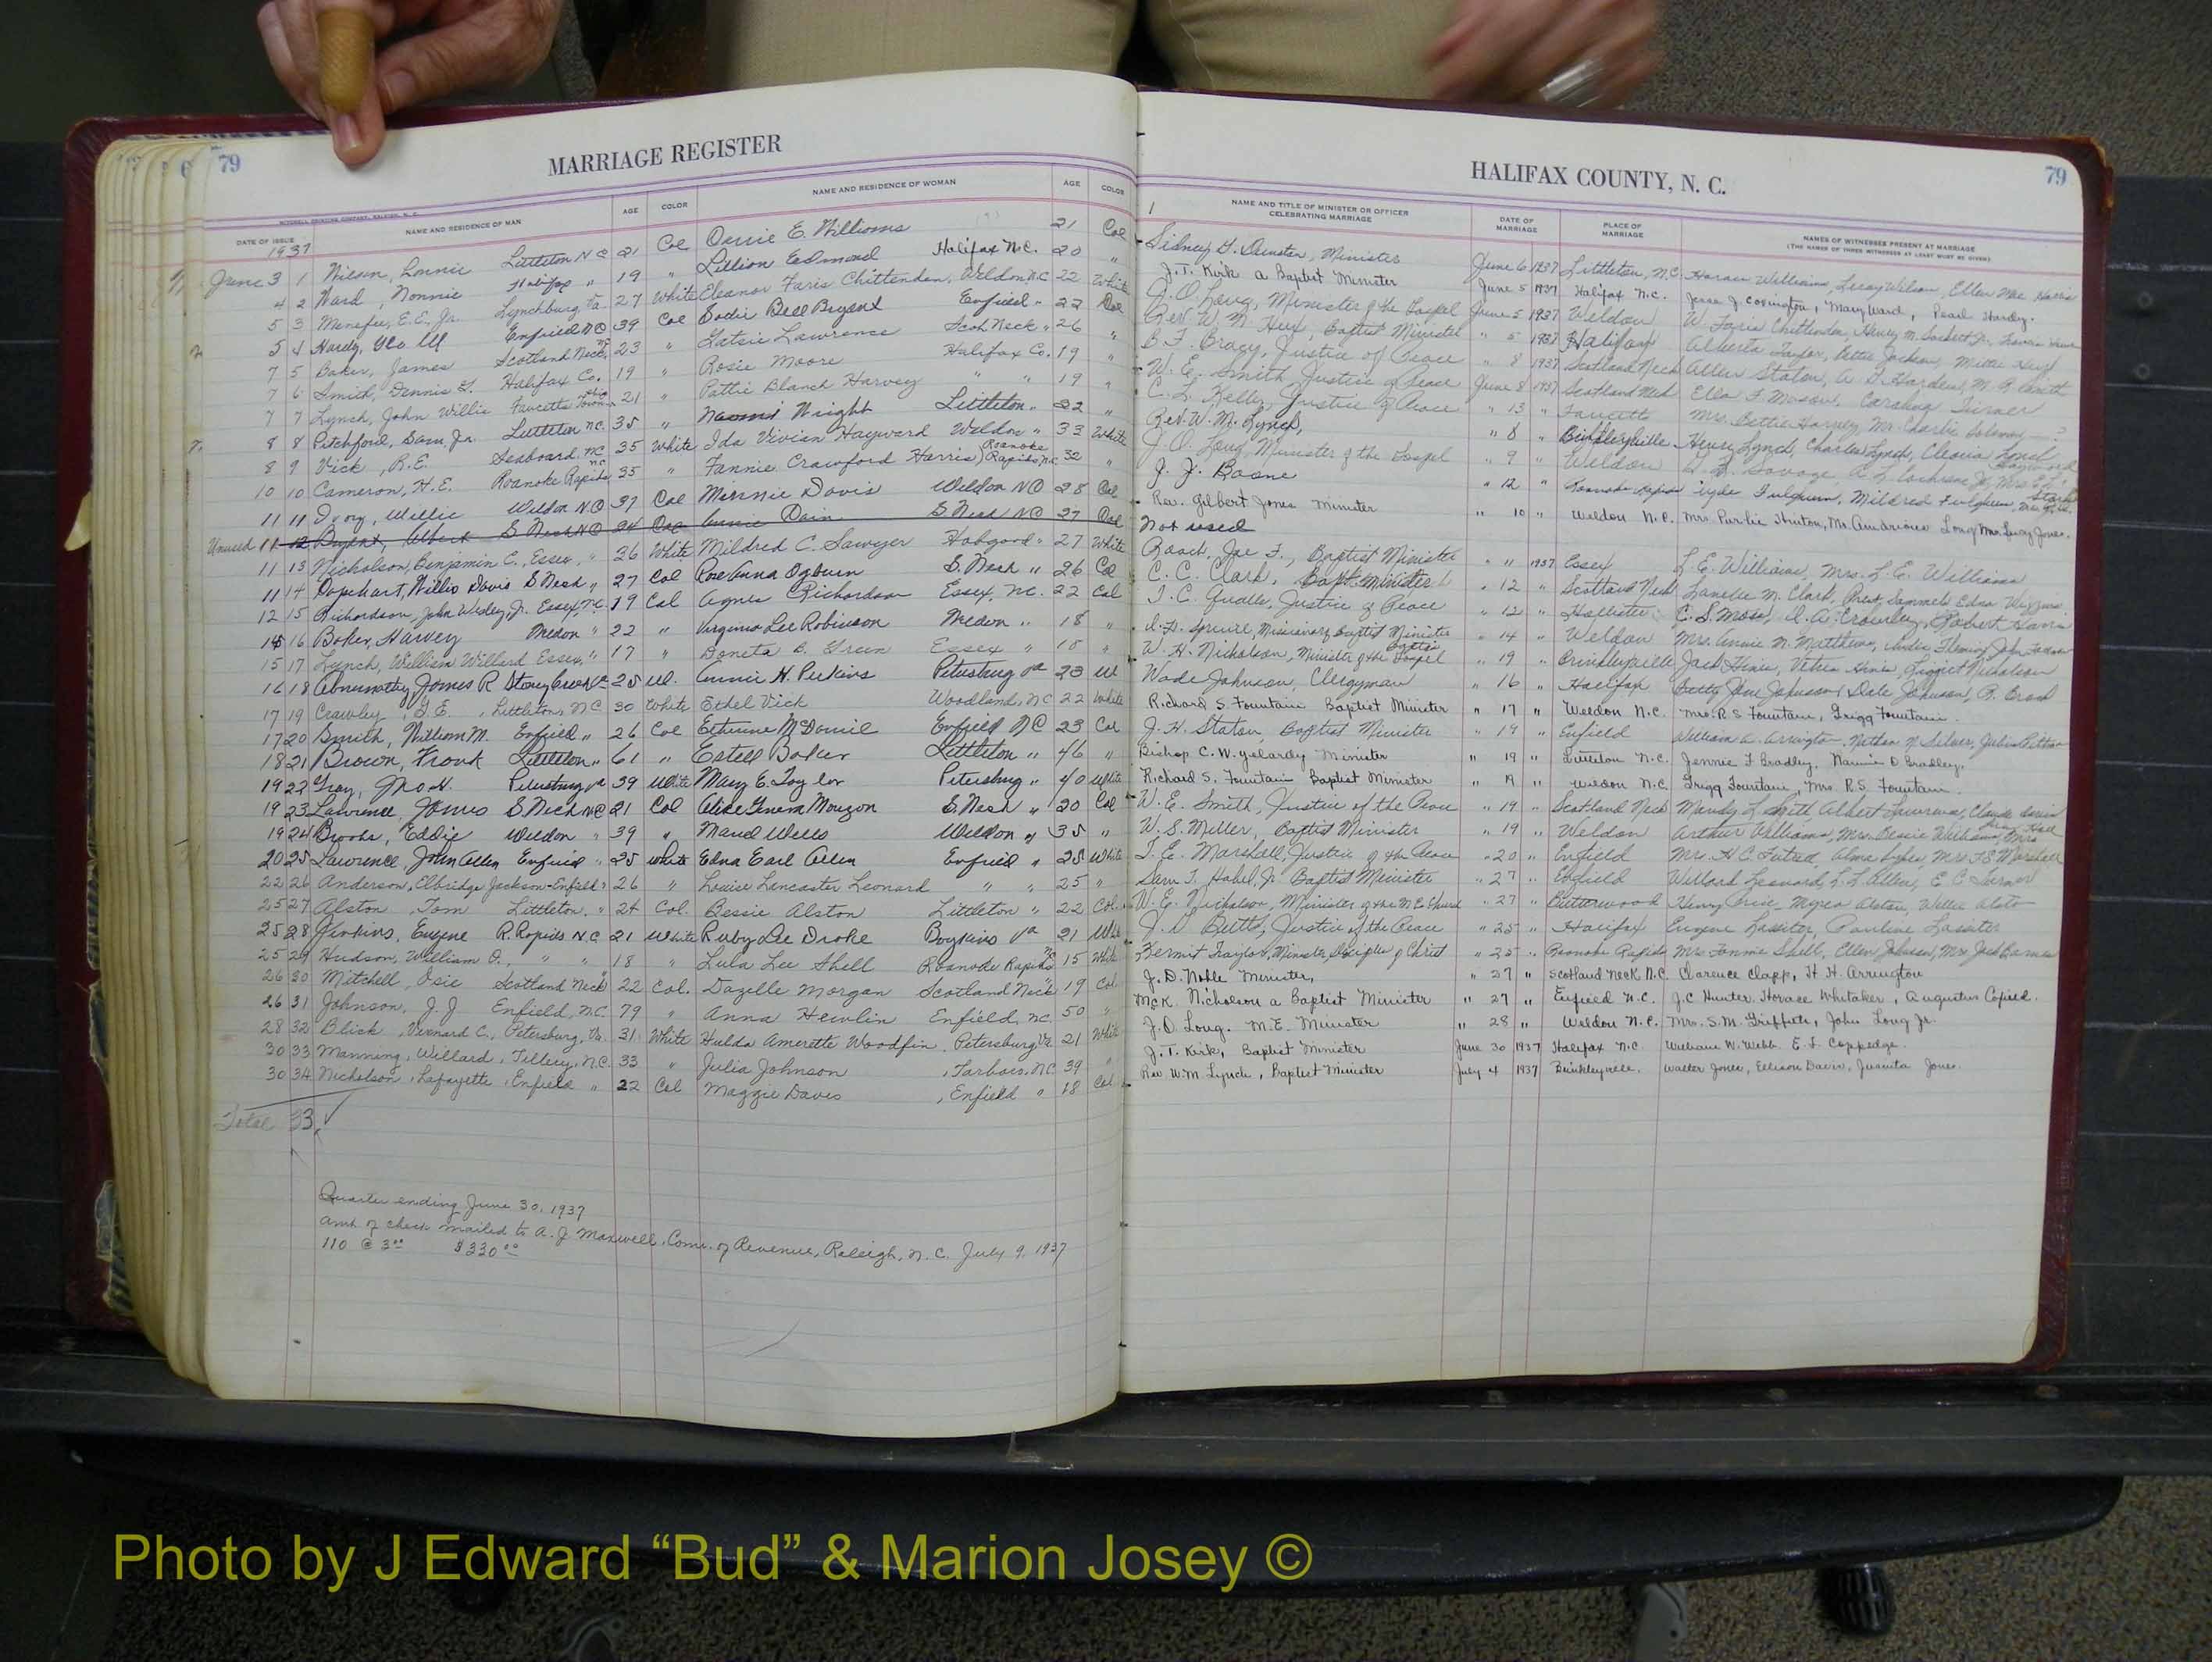 79
MARRIAGE REGISTER
DATE OF ISSUE NAME AND RESIDENCE OF MAN AGE COLOR NAME AND RESIDENCE OF WOMAN AGE COLOR
1937
June 3 1 Wilson, Lonnie Littleton N C 21 Col Ossie E. Williams 21 Col
4 2 Ward, Nonnie Halifax " 19 " Lillion Edmond Halifax N.C. 20 "
5 3 Menefee, E.E. Jr. Lynchburg Va 27 White Eleanor Faris Chittenden, Weldon N.C 22 White
5 4 Hardy, Geo. Enfield NC 39 Col Sadie Bell Bryant Enfield " 22 Col
7 5 Baker, James Scotland Neck, 23 " Lawrence Scot. Neck " 26 "
7 6 Smith, Dennis Halifax Co. 19 " Rosie Moore Halifax Co. 19 "
7 7 Lynch, John Willie Faucetts Town 21 " Pattie Blanch Harvey " " 19 "
8 8 Pitchford, Sam, Jr. Littleton N.C. 35 " Naomi Wright Littleton " 22 "
8 9 Vick, R.E. Seaboard, NC 35 White Ida Vivian Hayward Weldon " 33 White
10 10 Cameron, H.E. Roanoke Rapids N.C 35 " Fannie Crawford Harris) Roanoke Rapids, N.C. 32 "
11 11 Ivory, Willie Weldon NC 37 Col Minnie Davis Weldon NC 28 Col
Unused 11 12 Bryant, Albert S Neck NC Col Annie Dain S Neck NC 27 Col
11 13 Nicholson, Benjamin C., Essex, " 36 White Mildred C. Sawyer Hobgood " 27 White
11 14 Willis Davis S Neck " 27 Col Rose Anna Ogburn S. Neck " 26 Col
12 15 Richardson, John Wesley, Jr. Essex, N.C. 19 Col Agnes Richardson Essex, N.C. 22 Col
16 Baker, Harvey Medon " 22 " Virginia Lee Robinson Medon " 18 "
15 17 Lynch, William Willard Essex, " 17 " Doneta B. Green Essex " 18 "
16 18 Abernathy, James R Stony Creek Va 25 W. Annie H. Perkins Petersburg Va 23 W
17 19 Crawley, G.E., Littleton, N.C 30 White Ethel Vick Woodland, N.C 22 White
17 20 Smith, William M. Enfield " 26 Col McDaniel Enfield NC 23 Col
18 21 Brown, Frank Littleton " 61 " Estell Baker Littleton " 46 "
19 22 Gray, Jno H. Petersburg Va 39 White Mary E. Taylor Petersburg " 40 White
19 23 Lawrence, James S Neck NC 21 Col Alice Geneva Mouzon S. Neck " 20 Col
19 24 Brooks, Eddie Weldon " 39 " Maud Wells Weldon " 35 "
20 25 Lawrence, John Allen Enfield " 25 White Edna Earl Allen Enfield " 25 White
22 26 Anderson, Elbridge Jackson - Enfield " 26 " Louise Lancaster Leonard " " 25 "
25 27 Alston Tom Littleton. " 24 Col. Bessie Alston Littleton " 22 Col.
25 28 Jenkins, Eugene R. Rapids N.C. 21 White Ruby Lee Drake Boykins Va 21 White
25 29 Hudson, William O., " " 18 " Lula Lee Shell Roanoke Rapids N.C 15 White
26 30 Mitchell, Osie Scotland Neck 22 Col. Dazelle Morgan Scotland Neck 19 Col
26 31 Johnson, J.J Enfield, N.C. 79 " Anna Hewlin Enfield, N.C. 50 "
28 32 Blick, Vernard C., Petersburg, Va. 31 White Hulda Amerette Woodfin, Petersburg Va. 21 White
30 33 Manning, Willard, Tillery, N.C. 33 " Julia Johnson, Tarboro, N.C 39 "
30 34 Nicholson, Lafayette, Enfield " 22 Col Maggie Davis, Enfield " 18 Col
Total 33
Quarter ending June 30, 1937
Amt. of check mailed to A. J. Maxwell, Comr. of Revenue, Raleigh, N. C. July 9, 1937
110 @ 3.00 $330.00
HALIFAX COUNTY, N. C.
79
NAME AND TITLE OF MINISTER OR OFFICER CELEBRATING MARRIAGE DATE OF MARRIAGE PLACE OF MARRIAGE NAMES OF WITNESSES PRESENT AT MARRIAGE
(THE NAMES OF THREE WITNESSES AT LEAST MUST BE GIVEN)
Sidney Minister June 6 1937 Littleton, N.C. Williams, Leroy Wilson, Ellen Mae Harris
J.T. Kirk a Baptist Minister June 5 1937 Halifax N.C. Jesse J. Covington, Mary Ward, Pearl Hardy.
J. O. Long, Minister of the Gospel June 5 1937 Weldon W. Faris Chittenden, Henry M.
Rev. W. M. Baptist Minister " 5 1937 Halifax Alberta Taylor, Bettie Jackson, Mittie
B. F. Bracy, Justice of Peace " 8 1937 Scotland Neck Allen Staton,
W. E. Smith Justice of Peace June 8 1937 Scotland Neck Ella F. Mason, Caroline Turner
C. L. Kelly, Justice of Peace " 13 " Faucetts Mrs. Bettie Harvey, Mr. Charlie
Rev. W. M. Lynch, " 8 " Brinkleyville Henry Lynch, Charles Lynch, Cleora Lynch
J. O. Long, Minister of the Gospel " 9 " Weldon Savage,
J. J. Boone " 12 " Roanoke Rapids Clyde Fulghum, Mildred Fulghum
Rev. Gilbert Jones Minister " 10 " Weldon N.C. Mrs. Purlie Hinton, Mr. Long Mrs. Lucy Jones.
Not used
Roach, Joe F., Baptist Minister " 11 1937 Essex L. E. Williams, Mrs. L. E. Williams
C. C. Clark, Bapt. Minister " 12 " Scotland Neck M. Clark, Edna Wiggins
T. C. Qualls, Justice of Peace " 12 " Hollister C. S. Moss, Crowley, Robert
Missionary Baptist Minister " 14 " Weldon Mrs. Annie N. Matthews, Fleming
W. H. Nicholson, Minister of the Baptist Gospel " 19 " Brinkleyville Jack Hines, Hines, Nicholson
Wade Johnson, Clergyman " 16 " Halifax Betty Jane Johnson, Dale Johnson,
Richard S. Fountain Baptist Minister " 17 " Weldon N.C. Mrs. R S Fountain, Grigg Fountain.
J. H. Staton, Baptist Minister " 19 " Enfield William A. Arrington, Nathan N Silver,
Bishop C. W. Minister " 19 " Littleton N.C. Jennie F Bradley, Nannie D Bradley.
Richard S. Fountain Baptist Minister " 19 " Weldon N.C. Grigg Fountain, Mrs. R S Fountain
W. E. Smith, Justice of the Peace " 19 " Scotland Neck Mandy L Smith Albert Lawrence,
W. S. Miller, Baptist Minister " 19 " Weldon Arthur Williams, Mrs. Bessie Williams,
T. E. Marshall, Justice of the Peace " 20 " Enfield Mrs. H C Mrs. T E Marshall
Sam T. Habel, Jr. Baptist Minister " 27 " Enfield Willard Leonard, L. L. Allen, E. C.
W. E. Nicholson, Minister of the M E Church " 27 " Butterwood Henry Myra Alston, Willie Alston
J. D Butts, Justice of the Peace " 25 " Halifax Eugene Lassiter, Pauline Lassiter
Kermit Traylor, Minister Disciples of Christ " 25 " Roanoke Rapids Mrs Fannie Shell, Ellen Johnson, Mrs Jack Barnes
J. D. Noble Minister, " 27 " Scotland Neck N.C. Clarence Clapp, H. H. Arrington
McK. Nicholson a Baptist Minister " 27 " Enfield N.C. J.C Hunter. Horace Whitaker, Augustus Cofield.
J. O. Long. M.E. Minister " 28 " Weldon N.C. Mrs. S.M. Griffith, John Long Jr.
J. T. Kirk, Baptist Minister June 30 1937 Halifax N.C. William W. Webb E. L Coppedge.
Rev W.M. Lynch, Baptist Minister July 4 1937 Brinkleyville. Walter Jones, Ellison Davis, Juanita Jones.
Photo by J Edward “Bud” & Marion Josey ©